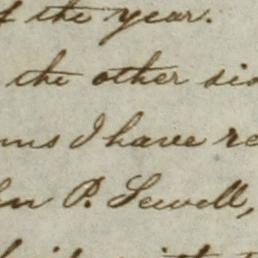 of the year.
the other sid
ms I have re
hn P. Sewell,